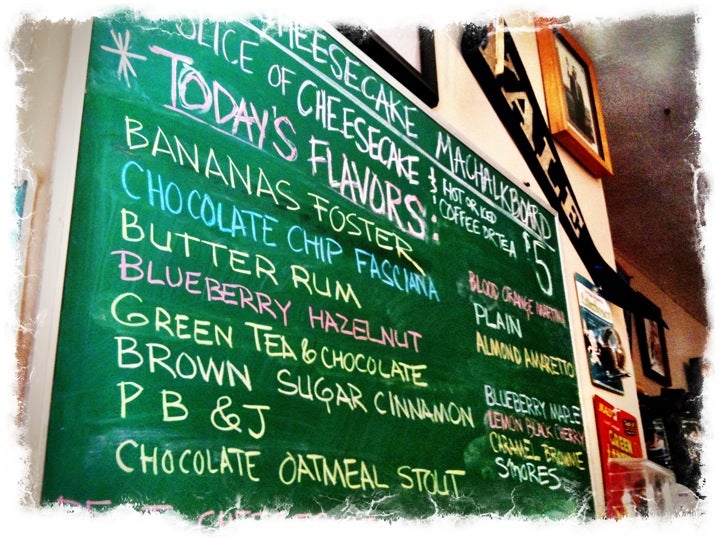 CHEESECAKE MACHALKBOARD
SLICE OF CHEESECAKE & HOT OR ICED COFFEE OR TEA $5
* TODAY'S FLAVORS:
BANANAS FOSTER
CHOCOLATE CHIP FASCIANA
BUTTER RUM
BLUEBERRY HAZELNUT
GREEN TEA & CHOCOLATE
BROWN SUGAR CINNAMON
P B & J
CHOCOLATE OATMEAL STOUT
BLOOD ORANGE MARTINI
PLAIN
ALMOND AMARETTO
BLUEBERRY MAPLE
LEMON BLACK CHERRY
CARAMEL BROWNIE
S'MORES
YALE